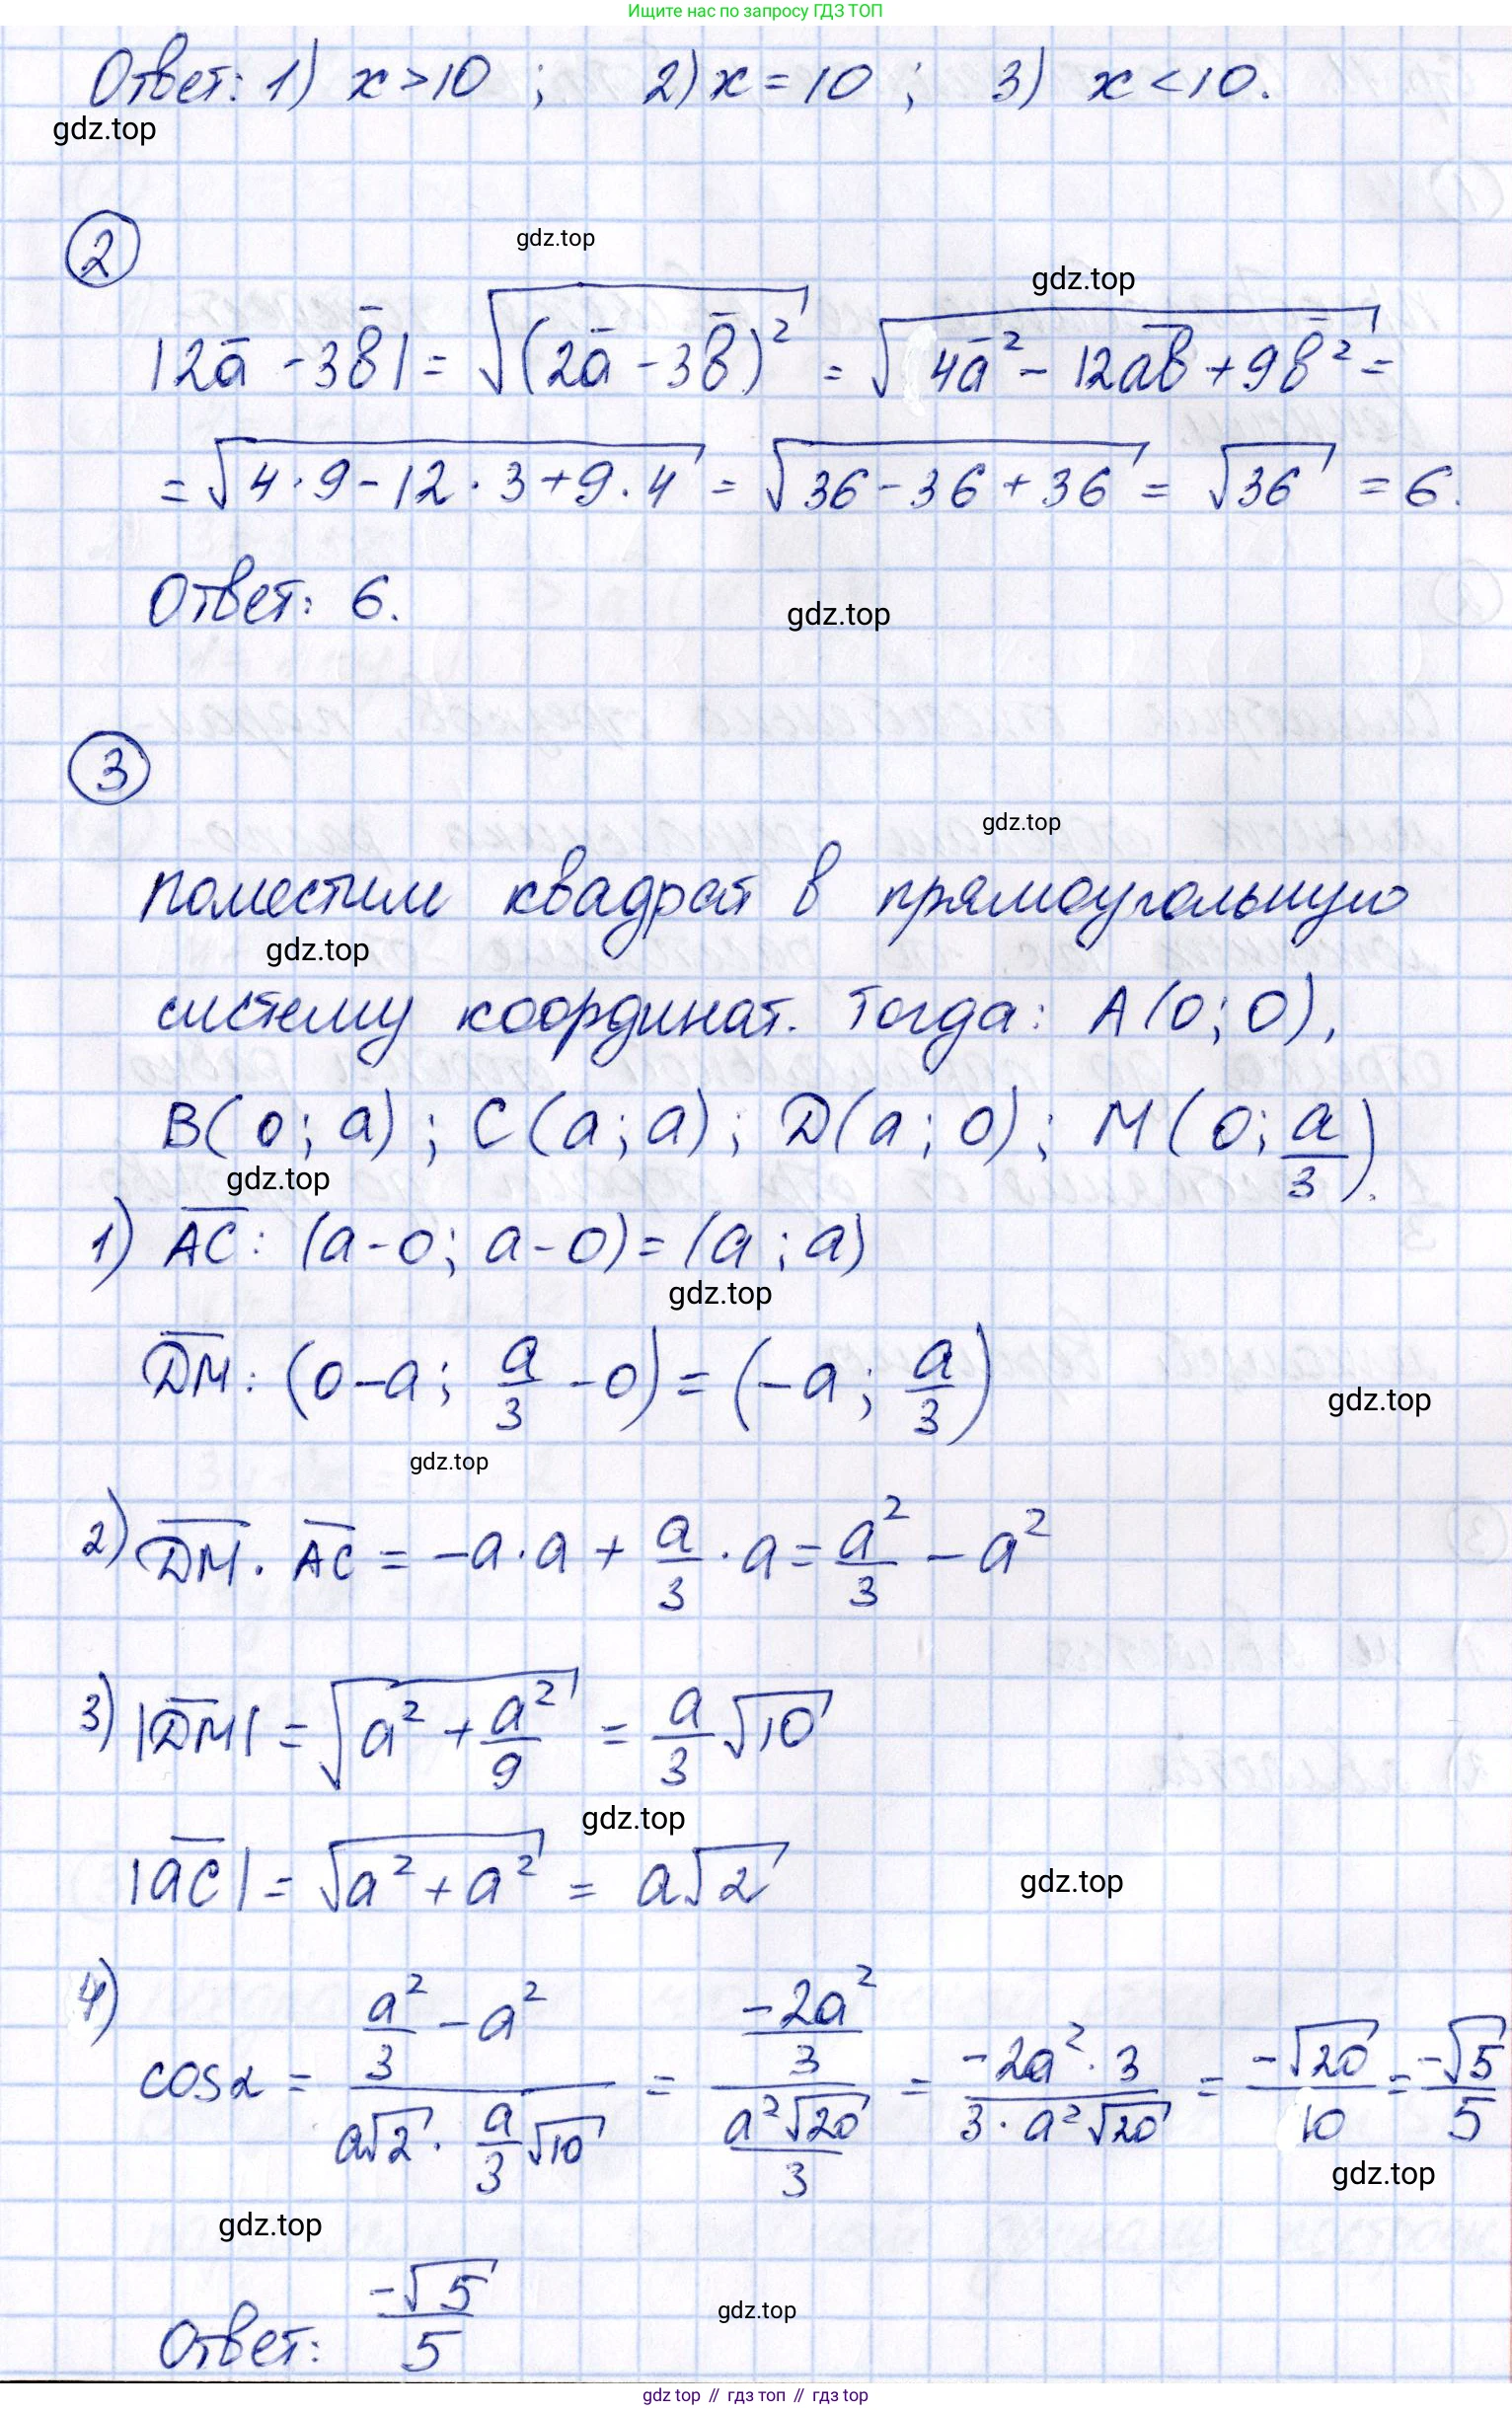 Ищите нас по запросу ГДЗ ТОП
Ответ: 1) x > 10 ; 2) x = 10 ; 3) x < 10.
gdz.top
2
gdz.top
gdz.top
|2a̅ - 3b̅| = √((2a̅ - 3b̅)²) = √(4a̅² - 12a̅b̅ + 9b̅²) =
= √(4·9 - 12·3 + 9·4) = √(36 - 36 + 36) = √36 = 6.
Ответ: 6.
gdz.top
3
gdz.top
поместим квадрат в прямоугольную
gdz.top
систему координат. Тогда: A(0; 0),
B(0; a); C(a; a); D(a; 0); M(0; a/3).
gdz.top
1) A̅C̅: (a-0; a-0) = (a; a)
gdz.top
D̅M̅: (0-a; a/3 - 0) = (-a; a/3)
gdz.top
gdz.top
2) D̅M̅ · A̅C̅ = -a·a + a/3 · a = a²/3 - a²
3) |D̅M̅| = √(a² + a²/9) = a/3 √10
gdz.top
|a̅c̅| = √(a² + a²) = a√2
gdz.top
4) cos α = (a²/3 - a²)/(a√2 · a/3 √10) = (-2a²/3)/(a²√20/3) = (-2a²·3)/(3·a²√20) = -√20/10 = -√5/5
gdz.top
gdz.top
Ответ: -√5/5
gdz.top
gdz top // гдз топ // гдз top